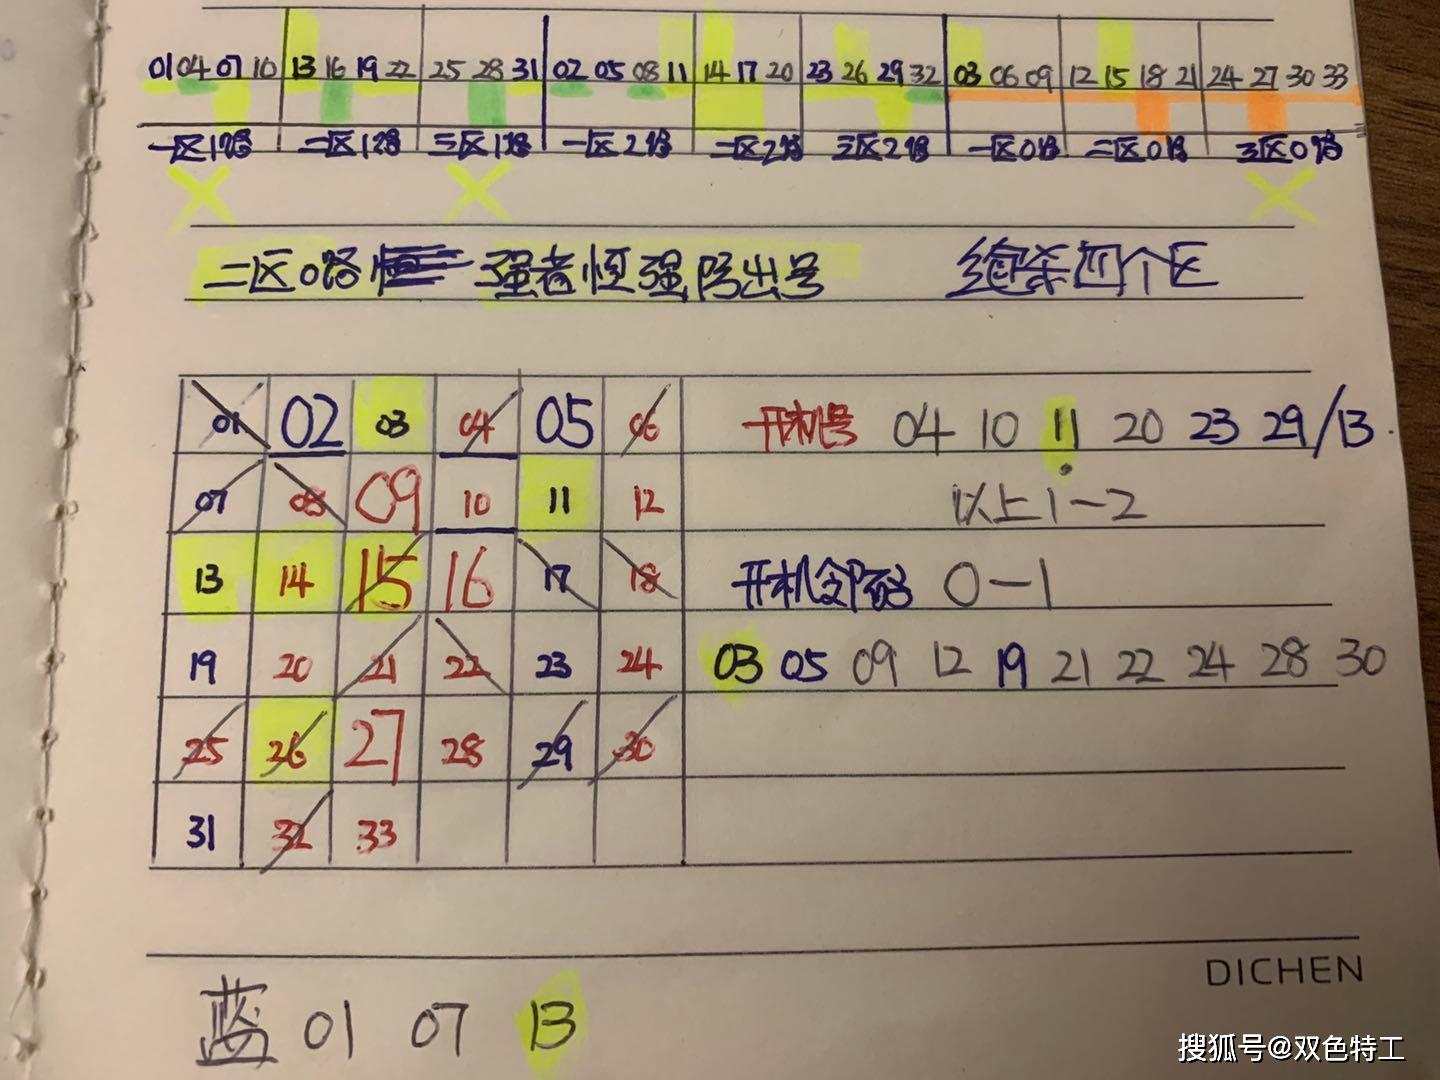 01 04 07 10 13 16 19 22 25 28 31 02 05 08 11 14 17 20 23 26 29 32 03 06 09 12 15 18 21 24 27 30 33
一区1路 二区1路 三区1路 一区2路 二区2路 三区2路 一区0路 二区0路 三区0路
二区0路 强者恒强防出号 绝杀四个区
01 02 03 04 05 06 开机号 04 10 11 20 23 29/13
07 08 09 10 11 12 以上1-2
13 14 15 16 17 18 开机邻码 0-1
19 20 21 22 23 24 03 05 09 12 19 21 22 24 28 30
25 26 27 28 29 30
31 32 33
DICHEN
蓝 01 07 13
搜狐号@双色特工